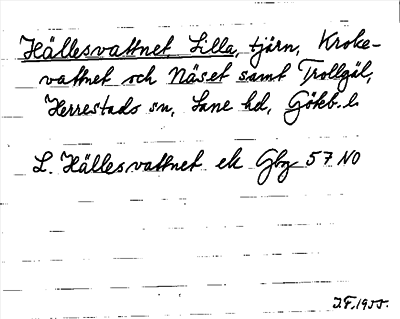 Hällesvattnet, Lilla, tjärn, Kroke-
vattnet och Näset samt Trollgäl,
Herrestads sn, Lane hd, Göteb. l.
L. Hällesvattnet ek Gbg 57 NO
J.F. 1955.